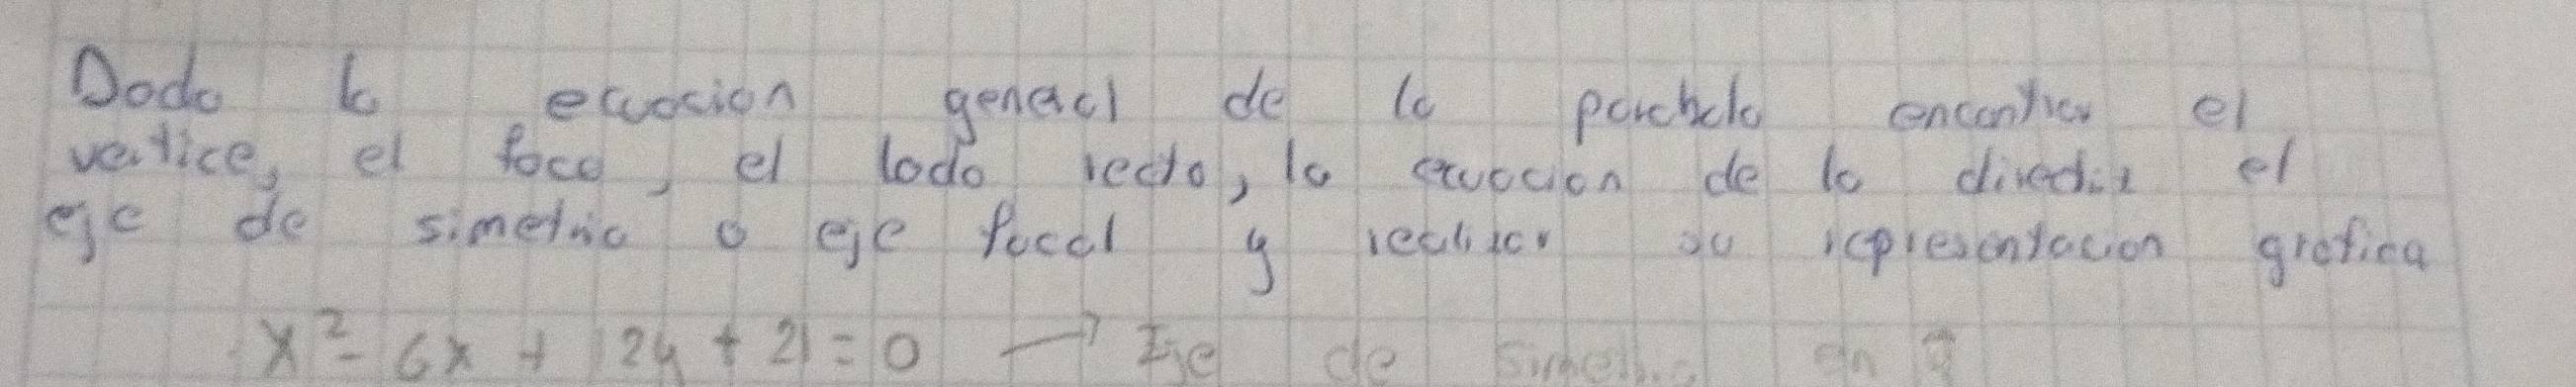 Dado la ecuacion general de la parabola encontrar el
vertice, el foco, el lado recto, la ecuacion de la directriz el
eje de simetria o eje focal y realizar su representacion grafica
x² - 6x + 12y + 21 = 0 → Eje de simetria en